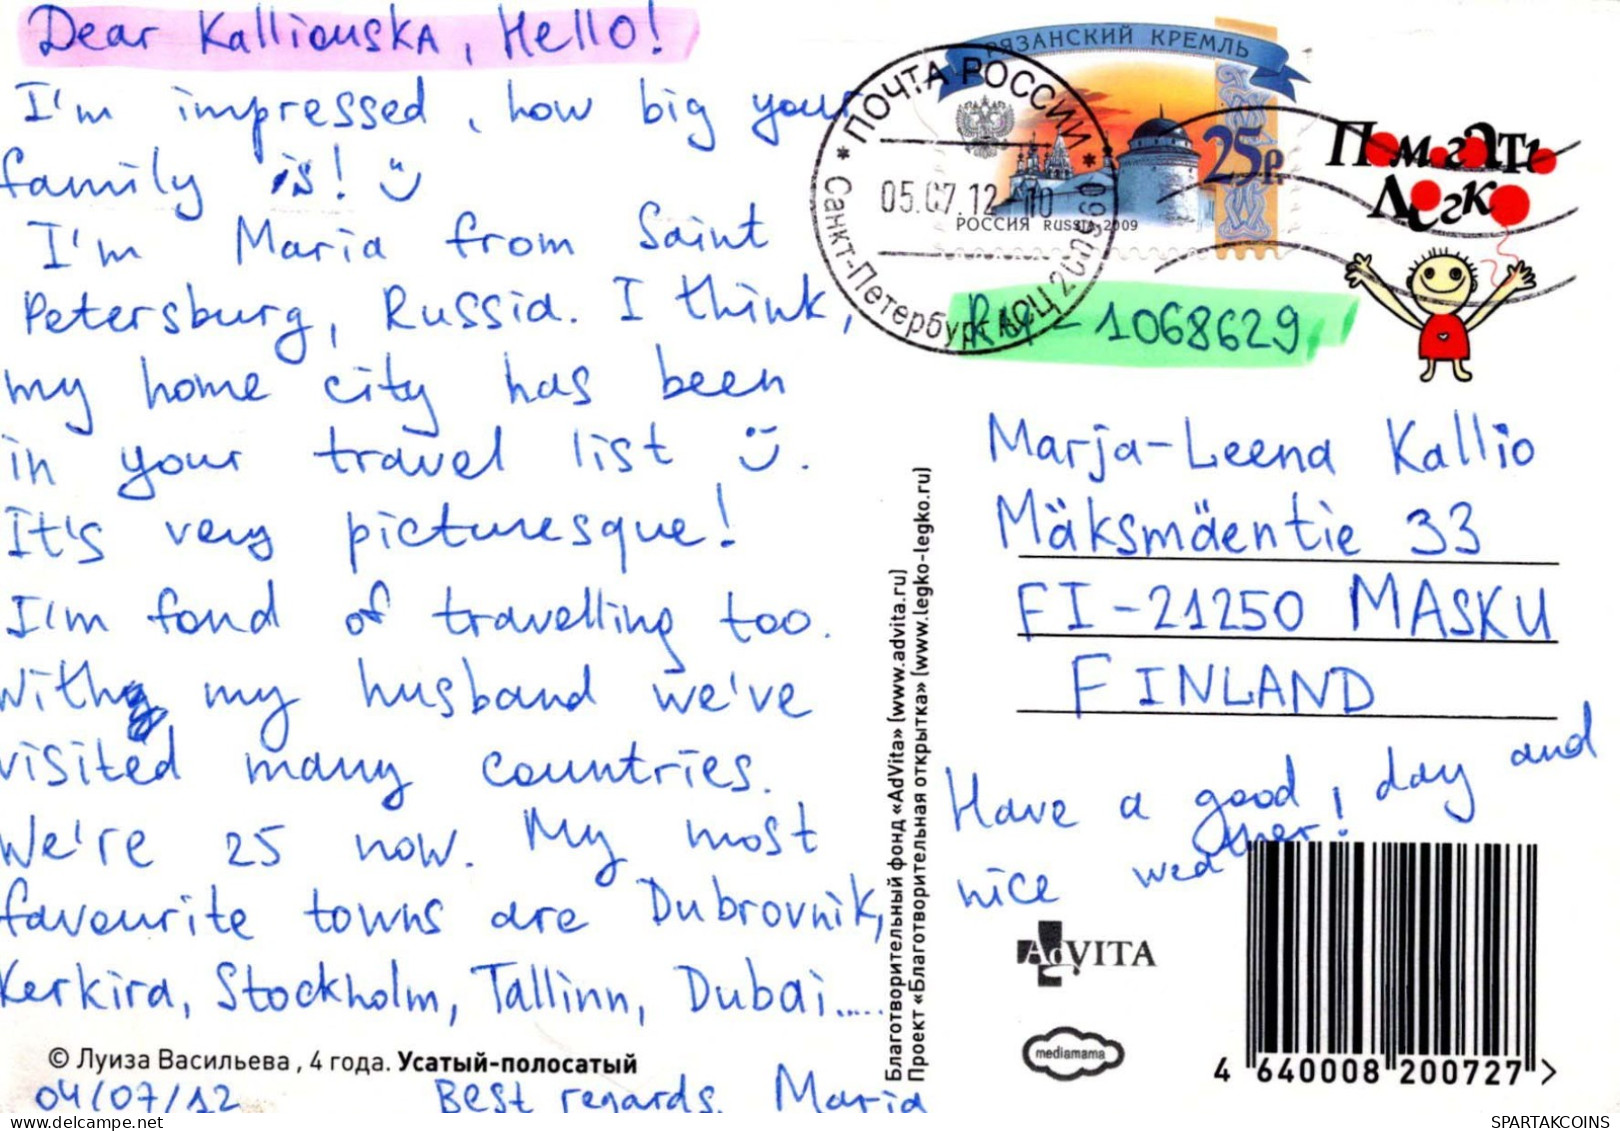 Dear Kalliouska, Hello!
I'm impressed, how big your
family is! ☺
I'm Maria from Saint
Petersburg, Russia. I think,
my home city has been
in your travel list ☺.
It's very picturesque!
I'm fond of travelling too.
With my husband we've
visited many countries.
We're 25 now. My most
favourite towns are Dubrovnik,
Kerkira, Stockholm, Tallinn, Dubai.....
© Луиза Васильева, 4 года. Усатый-полосатый
04/07/12 Best regards. Maria
Благотворительный фонд «AdVita» (www.advita.ru)
Проект «Благотворительная открытка» (www.legko-legko.ru)
РЯЗАНСКИЙ КРЕМЛЬ
25р
РОССИЯ RUSSIA 2009
* ПОЧТА РОССИИ *
05.07.12 10
Санкт-Петербург АСЦ
Помогать
Легко
1068629
Marja-Leena Kallio
Mäksmäentie 33
FI-21250 MASKU
FINLAND
Have a good day and
nice weather!
AdVITA
mediamama
4 640008 200727 >
SPARTAKCOINS